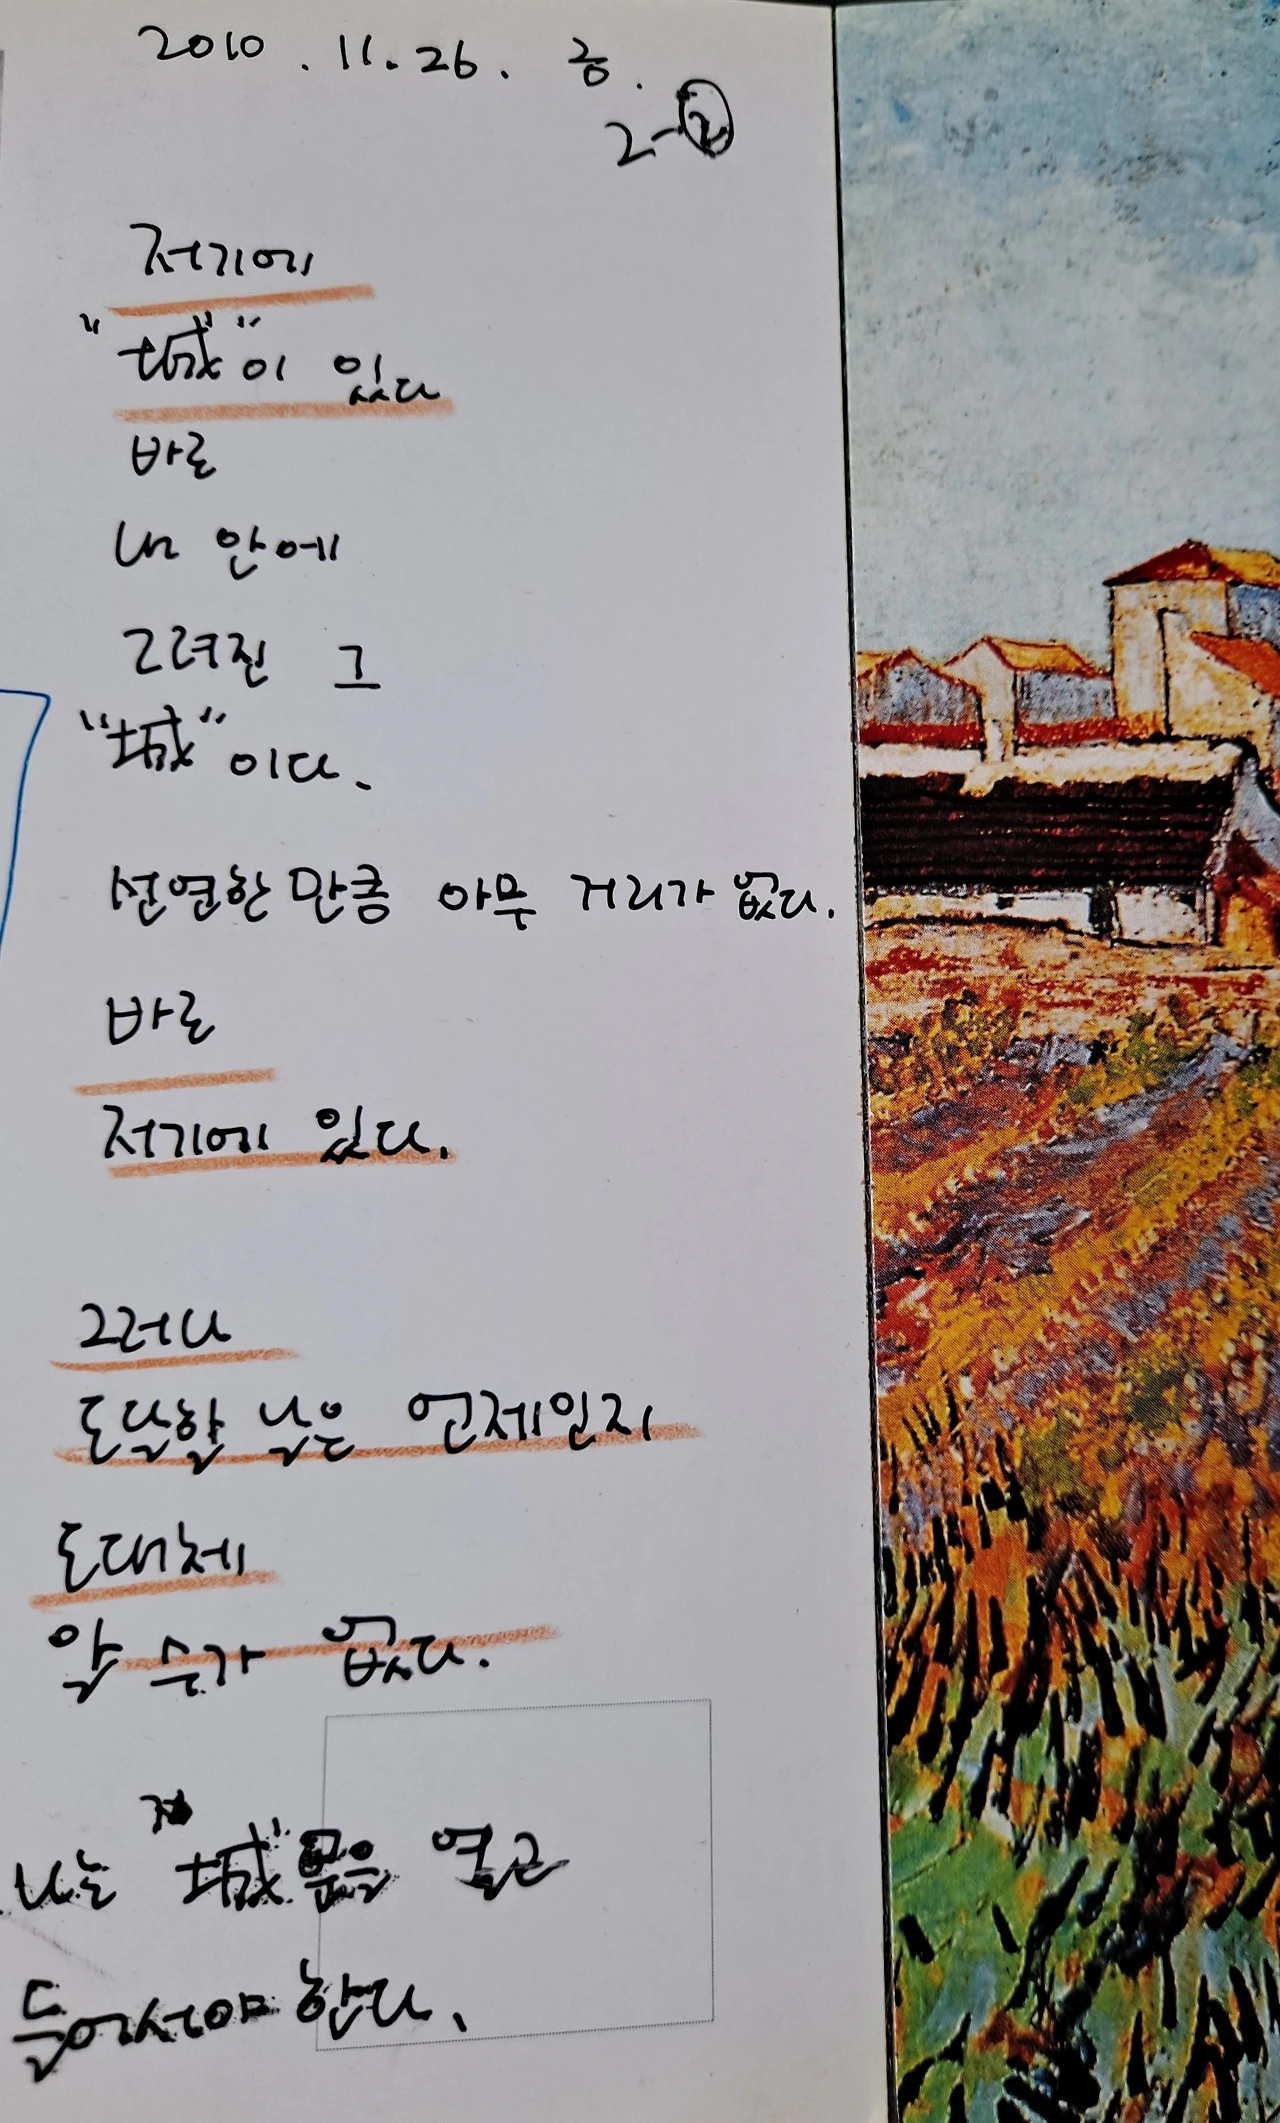 2010. 11. 26. 금.
2-②
저기에
"城"이 있다
바로
내 안에
그려진 그
"城"이다.
선연한 만큼 아무 거리가 없다.
바로
저기에 있다.
그러나
도달할 날은 언제인지
도대체
알 수가 없다.
나는 "城"문을 열고
들어서야 한다.